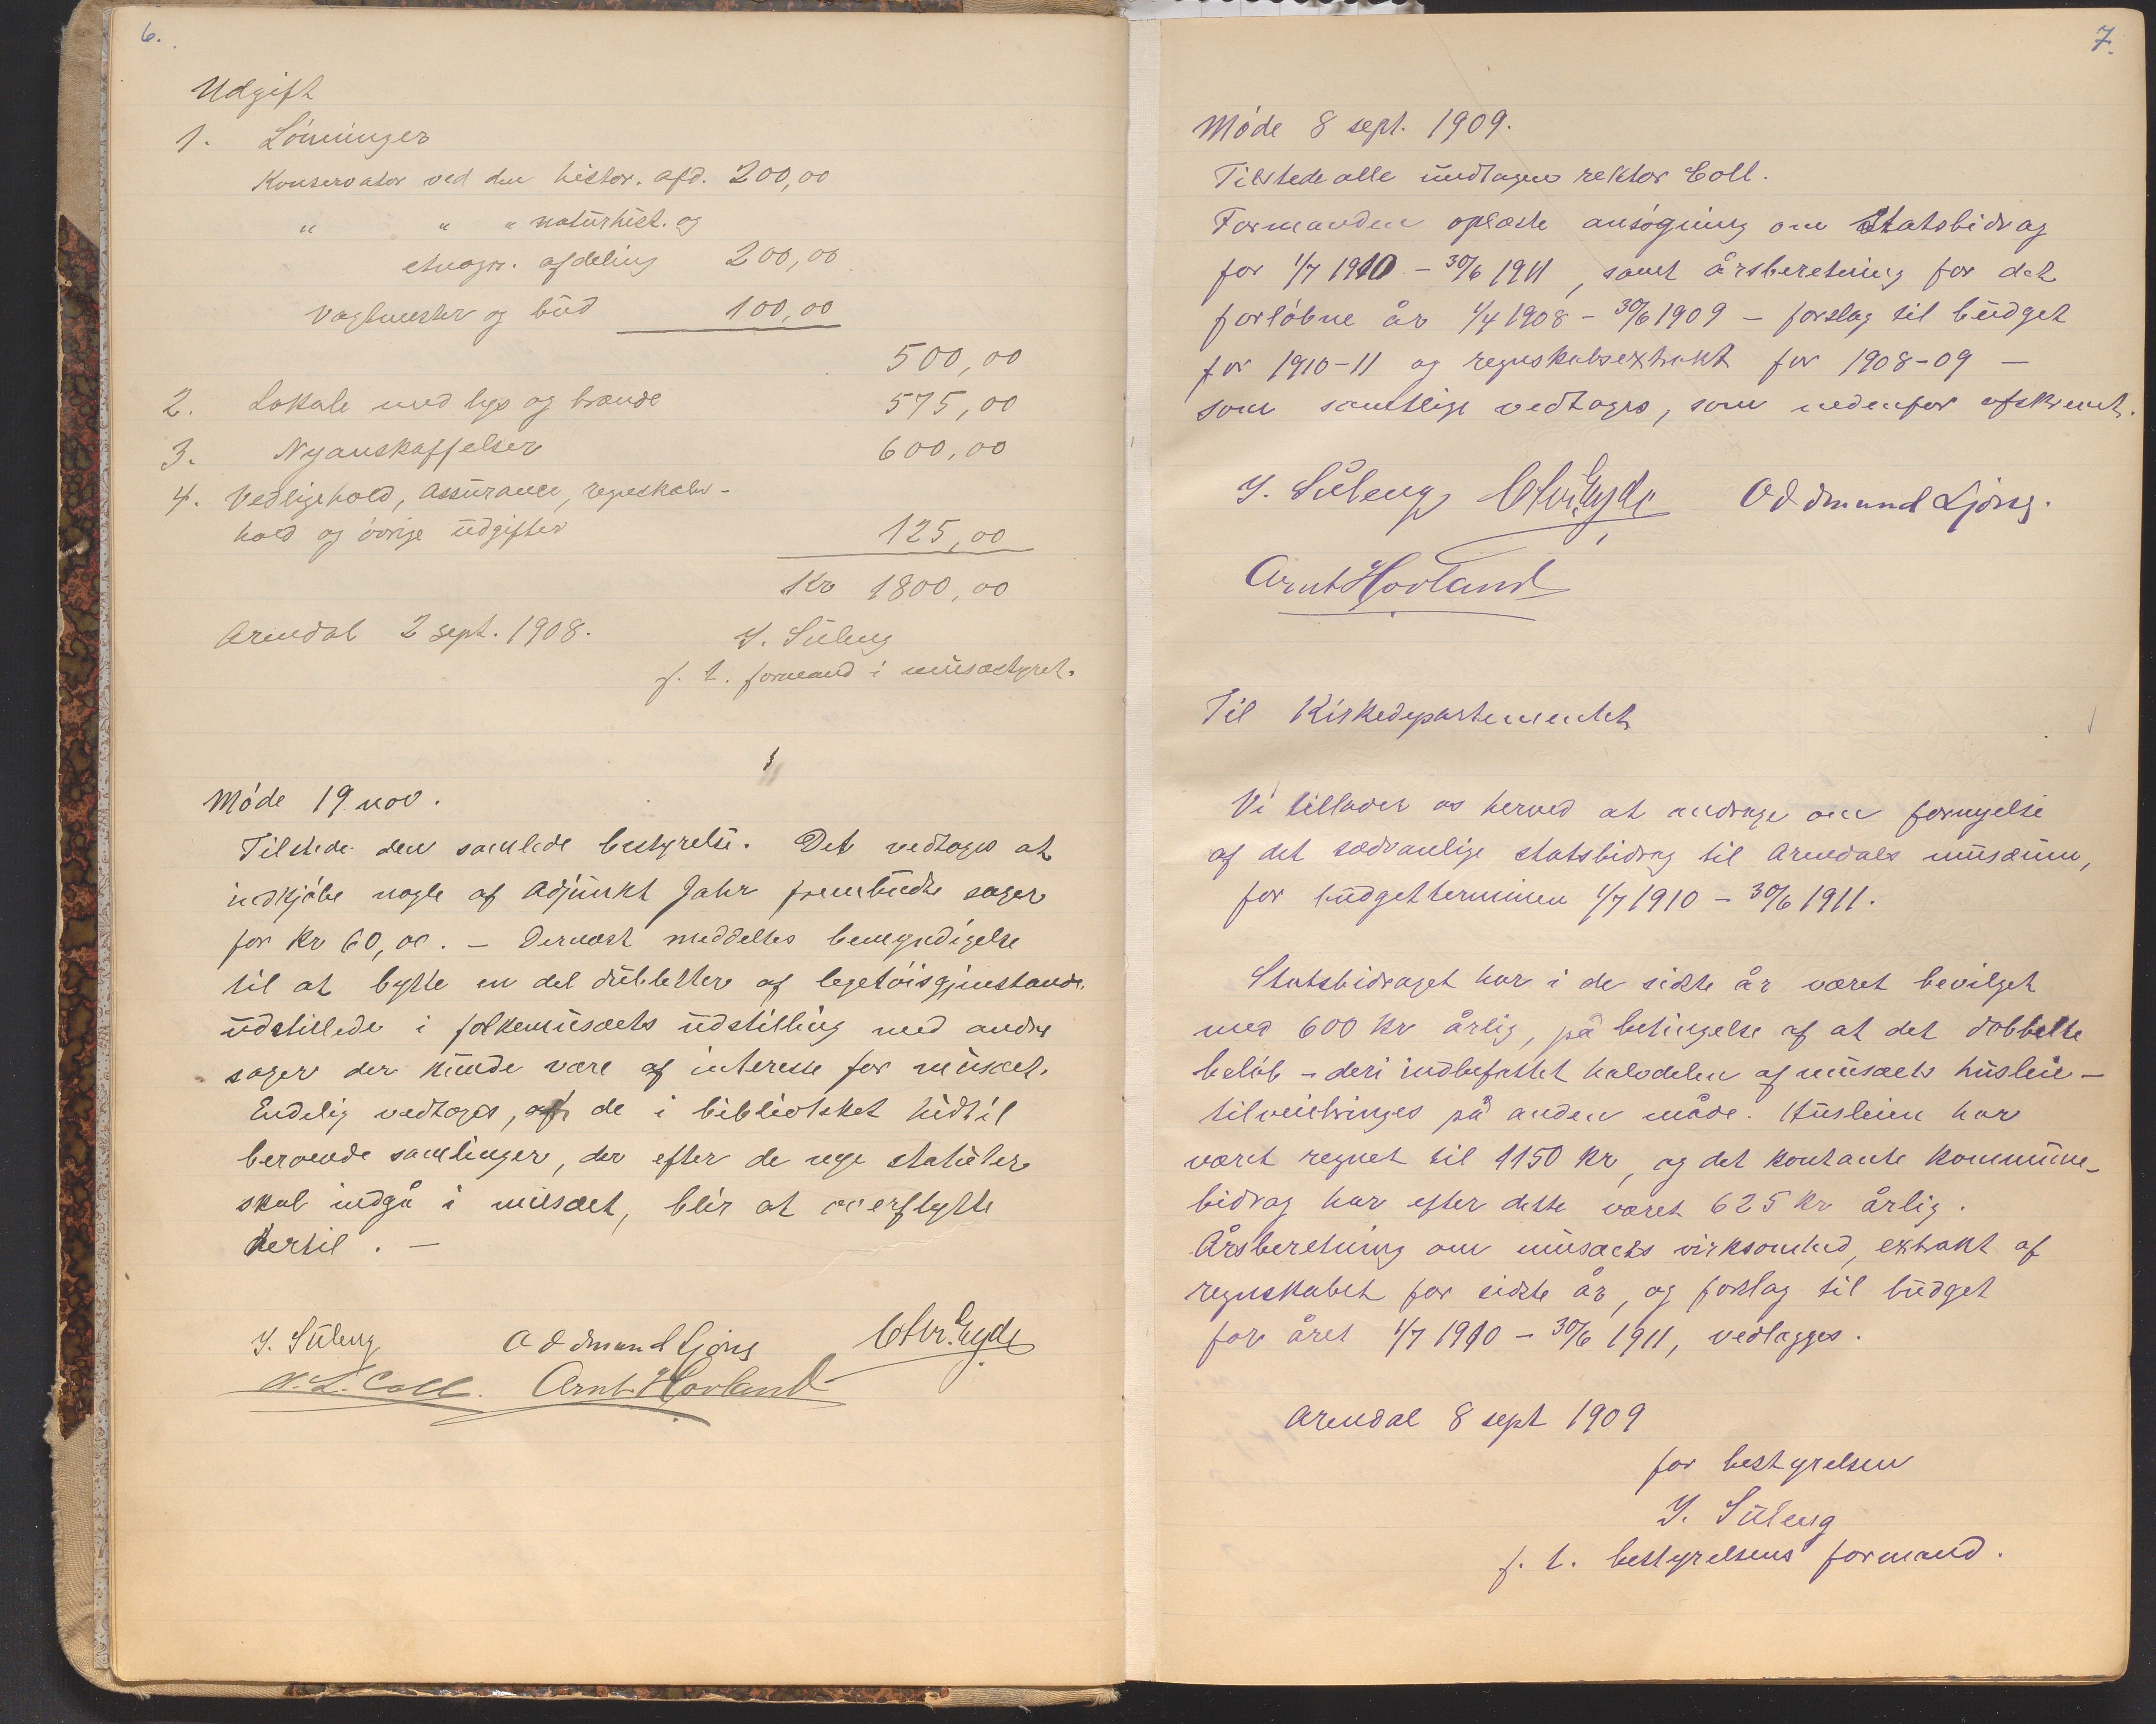 6.
Udgift
1. Lönninger
Konservator ved den histor. afd. 200,00
" " " naturhist. og
etnogr. afdeling 200,00
Vagtmester og bud 100,00
500,00
2. Lokale med lys og brænde 575,00
3. Nyanskaffelser 600,00
4. Vedligehold, assurance, regnskabs-
hold og övrige udgifter 125,00
Kr 1800,00
Arendal 2 sept. 1908.
f. t. formand i musæstyret.
Möde 19 nov.
Tilstede den samlede bestyrelse. Det vedtoges at
indkjöbe nogle af Adjunkt Jahr frembudte sager
for Kr 60,00. – Dernæst meddeltes bemyndigelse
til at bytte en del dubletter af legetöisgjenstande,
udstillede i folkemusæets udstilling med andre
sager der kunde være af interesse for musæet.
Endelig vedtoges, at de i biblioteket hidtil
beroende samlinger, der efter de nye statuter
skal indgå i musæet, blir at overflytte
hertil. –
Oddmund Ljong
N. L. Coll. Arnt Hovland
7.
Möde 8 sept. 1909.
Tilstede alle undtagen rektor Coll.
Formanden oplæste ansögning om Statsbidrag
for 1/7 1910 – 30/6 1911, samt årsberetning for det
forlöbne år 1/4 1908 – 30/6 1909 – forslag til budget
for 1910–11 og regnskabsextrakt for 1908–09 –
som samtlige vedtoges, som nedenfor afskrevet.
Oddmund Ljong.
Arnt Hovland
Til Kirkedepartementet
Vi tillader os herved at andrage om fornyelse
af det sædvanlige statsbidrag til Arendals musæum,
for budgetterminen 1/7 1910 – 30/6 1911.
Statsbidraget har i de sidste år været bevilget
med 600 Kr årlig, på betingelse af at det dobbelte
belöb – deri indbefattet halvdelen af musæets husleie –
tilveiebringes på anden måde. Husleien har
været regnet til 1150 Kr, og det kontante kommune-
bidrag har efter dette været 625 Kr årlig.
Årsberetning om musæets virksomhed, extrakt af
regnskabet for sidste år, og forslag til budget
for året 1/7 1910 – 30/6 1911, vedlægges.
Arendal 8 sept 1909
for bestyrelsen
f. t. bestyrelsens formand.